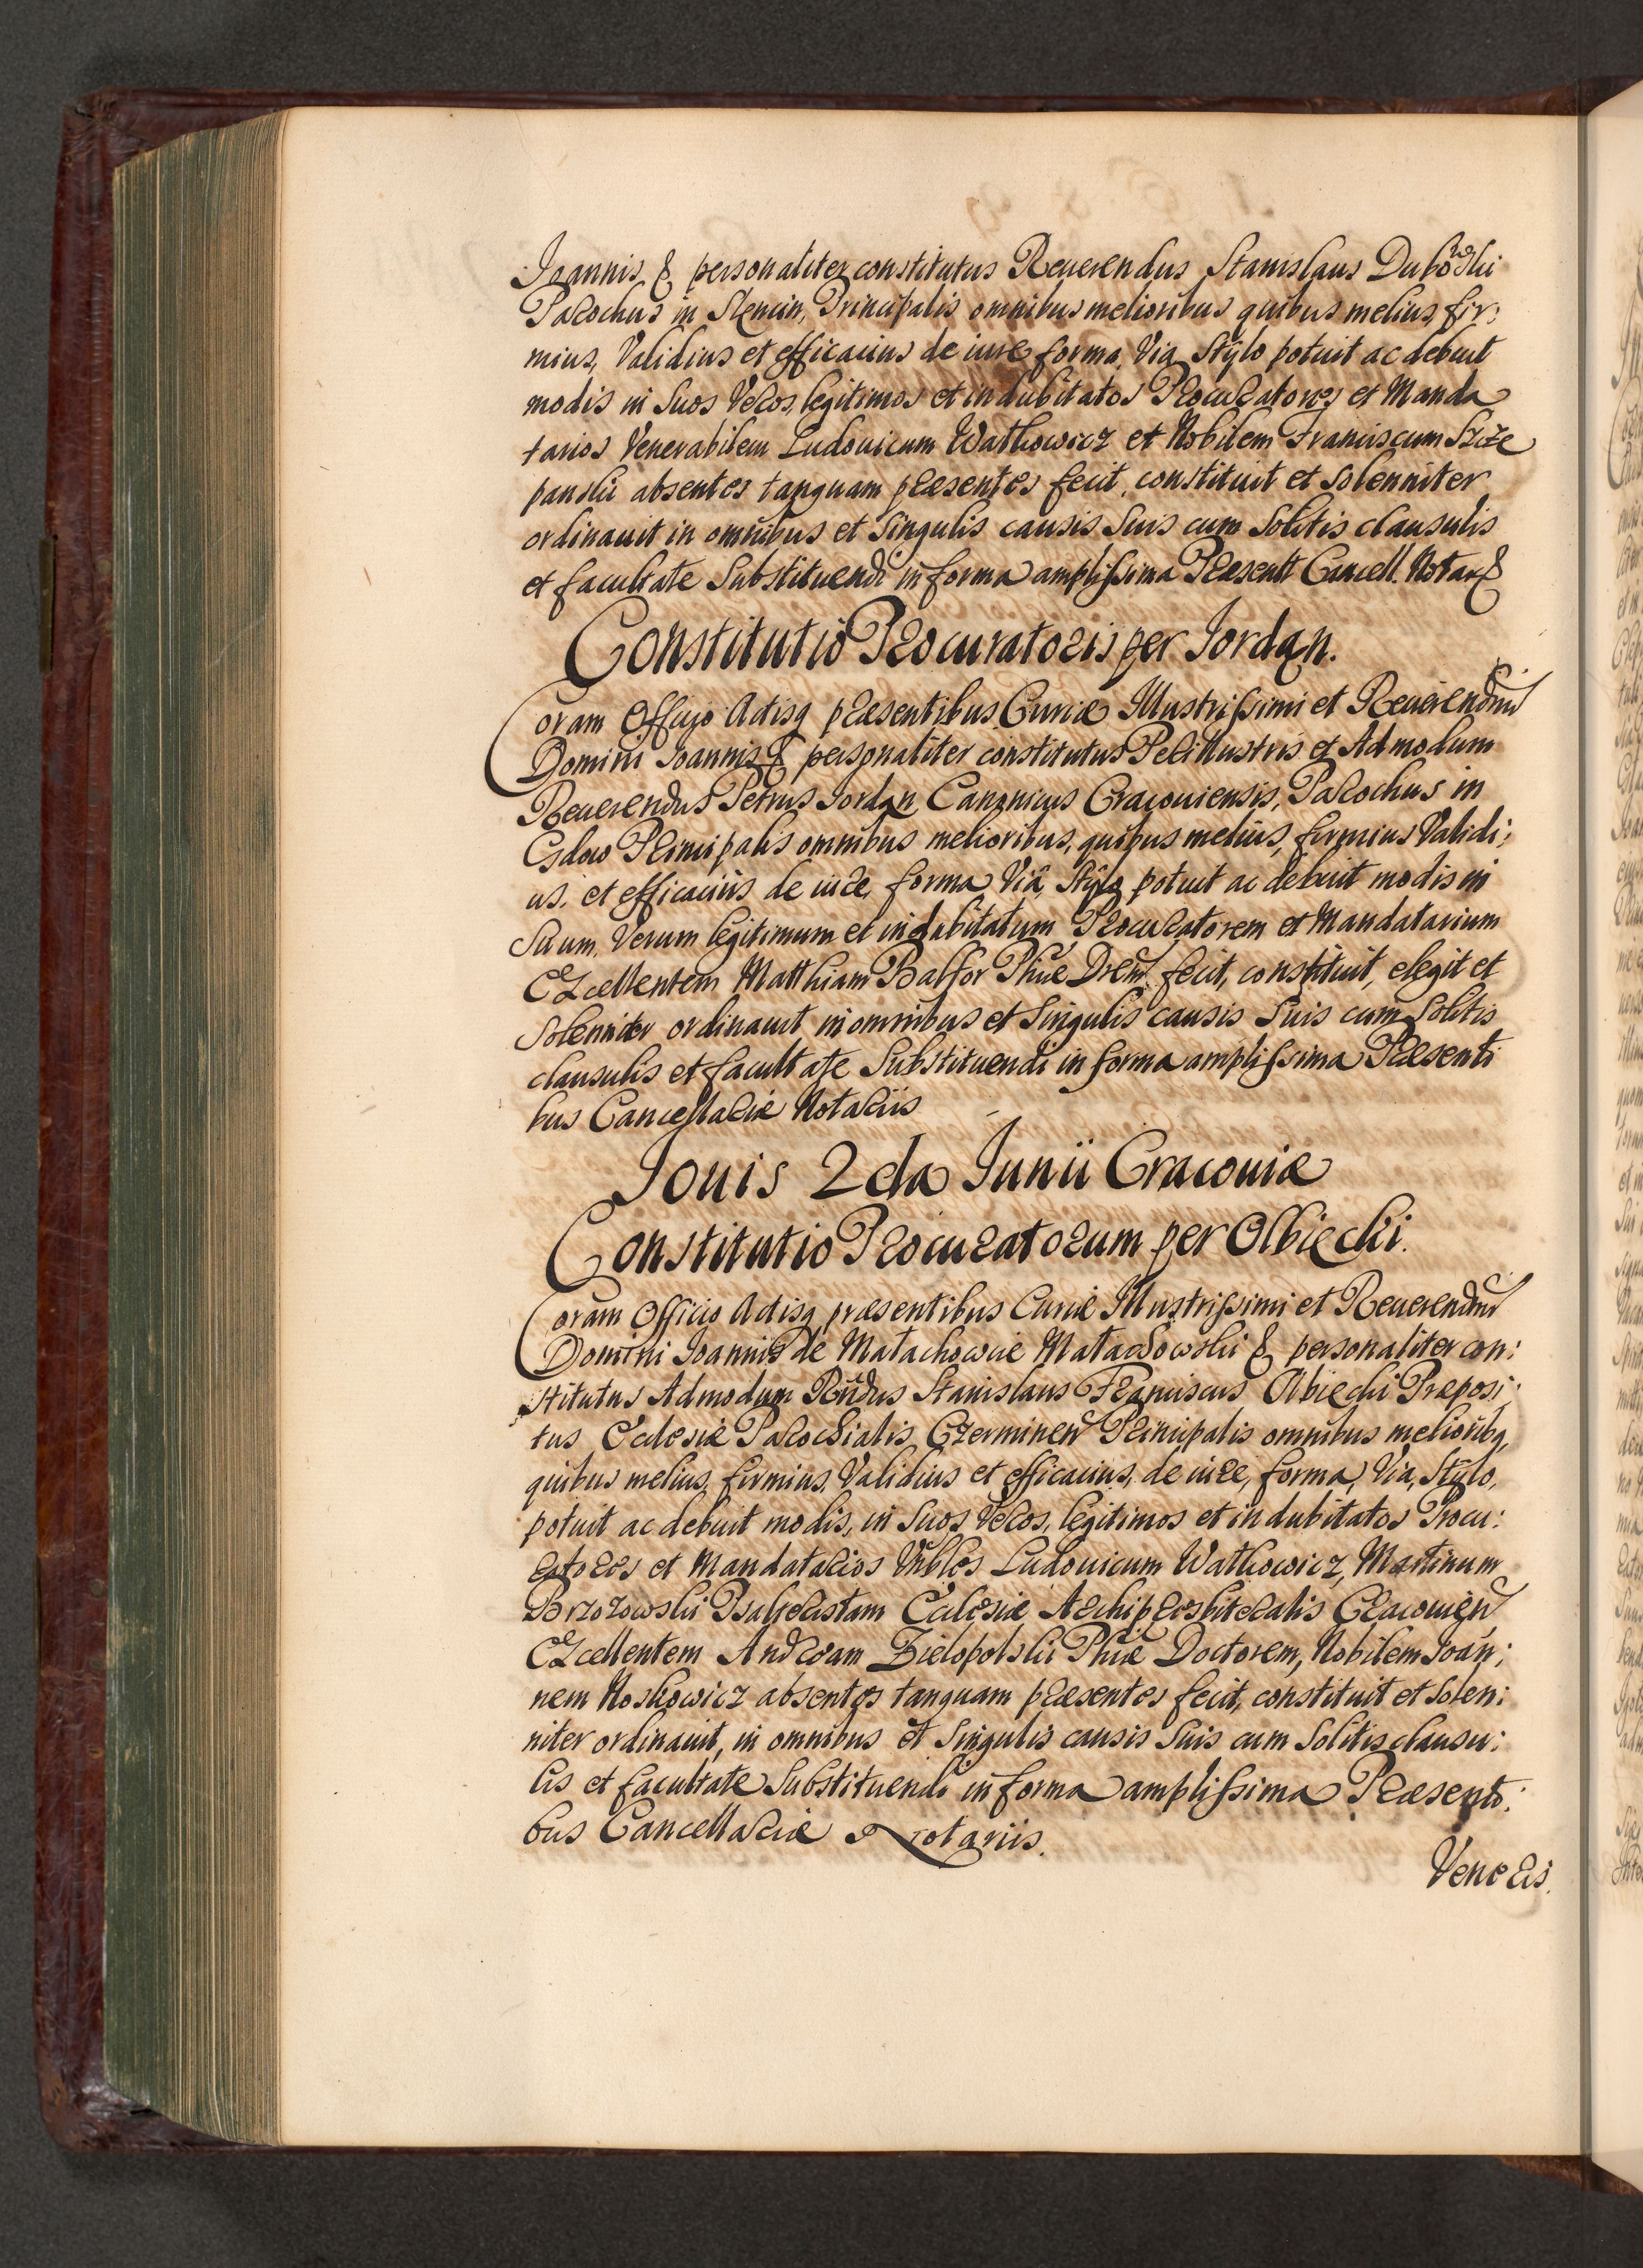 Ioannis & personaliter constitutus Reuerendus Stanislaus Dubowski
Parochus in Slencin, Principalis omnibus melioribus quibus melius, fir:
mius, Validius et efficacius de iure forma, Via Stylo potuit ac debuit
modis in Suos Veros, legitimos et indubitatos Procuratores et Manda
tarios Venerabilem Ludouicum Wathowicz et Nobilem Franciscum Szcze
panski absentes tanquam præsentes fecit, constituit et Solenniter
ordinauit in omnibus et Singulis causis Suis cum Solitis clausulis
et facultate Substituendi in forma amplissima Præsentt Cancell. Notar &
Constitutio Procuratoris per Iordan.
Coram Officio Actisq præsentibus Curiæ Illustrissimi et Reuerendmi
Domini Ioannis & personaliter constitutus Perillustris et Admodum
Reuerendus Petrus Iordan, Canonicus Cracouiensis, Parochus in
Gdow Principalis omnibus melioribus, quibus melius, firmius Validi:
us, et efficaciùs de iure, forma, Viâ, Stylo potuit ac debuit modis in
Suum, Verum legitimum et indubitatum Procuratorem et Mandatarium
Excellentem Matthiam Balfor Phiæ Drem fecit, constituit, elegit et
Solenniter ordinauit in omnibus et Singulis causis Suis cum Solitis
clausulis et facultate Substituendi in forma amplissima Præsenti
bus Cancellariæ Notariis
Iouis 2da Iunii Cracouiæ
Constitutio Procuratorum per Olbiecki.
Coram Officio Actisq præsentibus Curiæ Illustrissimi et Reuerendmi
Domini Ioannis de Małachowice Małachowski & personaliter con:
stitutus Admodum Rndus Stanislaus Franciscus Olbiecki Præposi:
tus Eclesiæ Parochialis Czerminen Principalis omnibus melioribq,
quibus melius, firmius, Validius et efficacius, de iure, forma, Via, Stylo,
potuit ac debuit modis, in Suos Veros, legitimos et indubitatos Procu:
ratores et Mandatarios Vnbles Ludouicum Wathowicz, Martinum
Brzozowski Psalteristam Eclesiæ Archipresbiteralis Cracouien
Excellentem Andream Zielopolski Phiæ Doctorem, Nobilem Ioan:
nem Noskowicz absentes tanquam præsentes fecit, constituit et Solen:
niter ordinauit, in omnibus et Singulis causis Suis cum Solitis clausu:
lis et facultate Substituendi in forma amplissima Præsenti:
bus Cancellariæ Notariis.
Veneris.